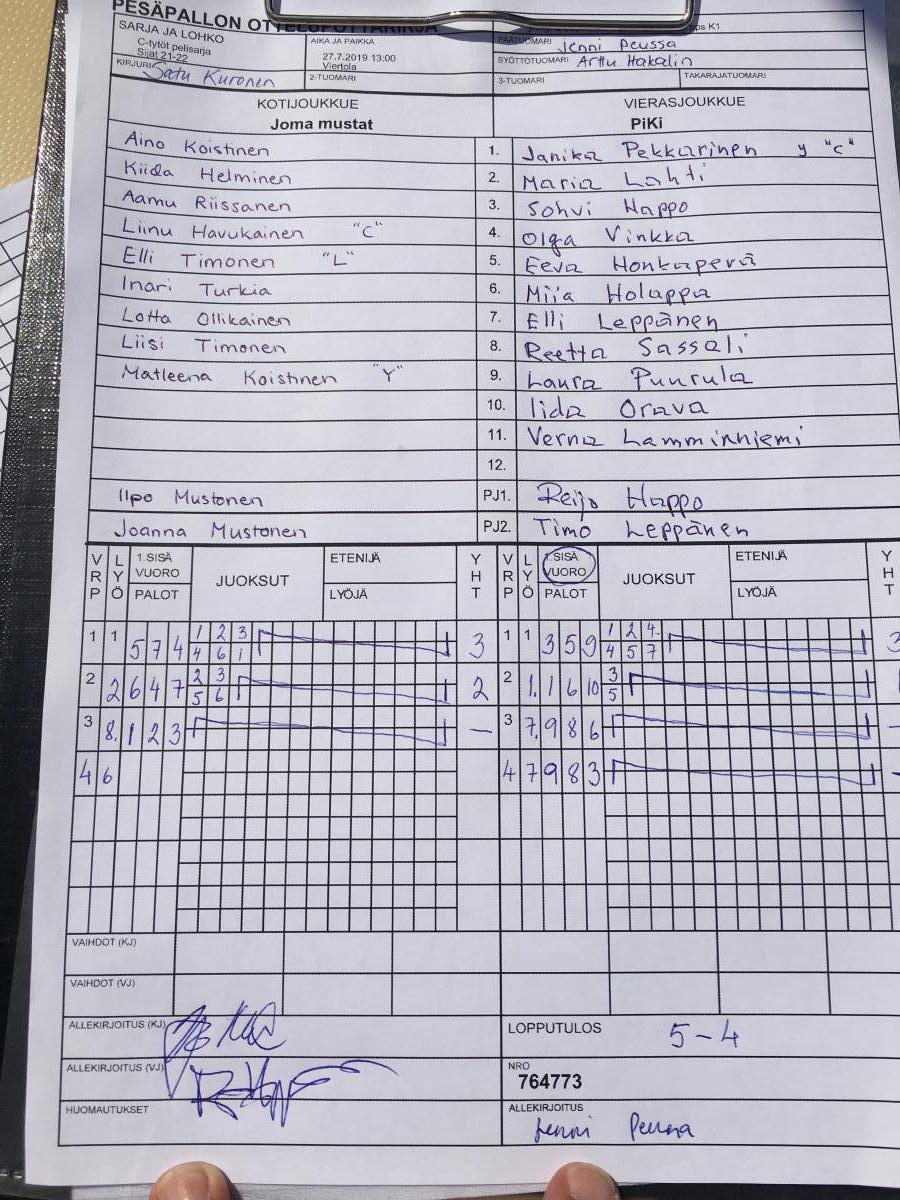 PESÄPALLON OTTELUPÖYTÄKIRJA
SARJA JA LOHKO
C-tytöt pelisarja
Sijat 21-22
AIKA JA PAIKKA
27.7.2019 13:00
Viertola
K1
PÄÄTUOMARI Jenni Peussa
SYÖTTÖTUOMARI Arttu Hakalin
KIRJURI Satu Kuronen
2-TUOMARI
3-TUOMARI
TAKARAJATUOMARI
KOTIJOUKKUE VIERASJOUKKUE
Joma mustat PiKi
Aino Koistinen 1. Janika Pekkarinen y "c"
Kiida Helminen 2. Maria Lahti
Aamu Riissanen 3. Sohvi Happo
Liinu Havukainen "C" 4. Olga Vinkka
Elli Timonen "L" 5. Eeva Honkaperä
Inari Turkia 6. Miia Holappa
Lotta Ollikainen 7. Elli Leppänen
Liisi Timonen 8. Reetta Sassali
Matleena Koistinen "Y" 9. Laura Puurula
10. Iida Orava
11. Verna Lamminniemi
12.
Ilpo Mustonen PJ1. Reijo Happo
Joanna Mustonen PJ2. Timo Leppänen
VRP LYÖ 1.SISÄ VUORO PALOT JUOKSUT ETENIJÄ LYÖJÄ YHT VRP LYÖ 1.SISÄ VUORO PALOT JUOKSUT ETENIJÄ LYÖJÄ YHT
1 1 5 7 4 1 2 3 3 1 1 3 5 9 1 2 4 3
4 6 1 4 5 7
2 2 6 4 7 2 3 2 2 1. 1 6 10 3
5 6 5
3 8. 1 2 3 — 3 7. 9 8 6 -
4 6 4 7 9 8 3 -
VAIHDOT (KJ)
VAIHDOT (VJ)
ALLEKIRJOITUS (KJ) LOPPUTULOS 5-4
ALLEKIRJOITUS (VJ) NRO
764773
HUOMAUTUKSET ALLEKIRJOITUS
Jenni Peussa